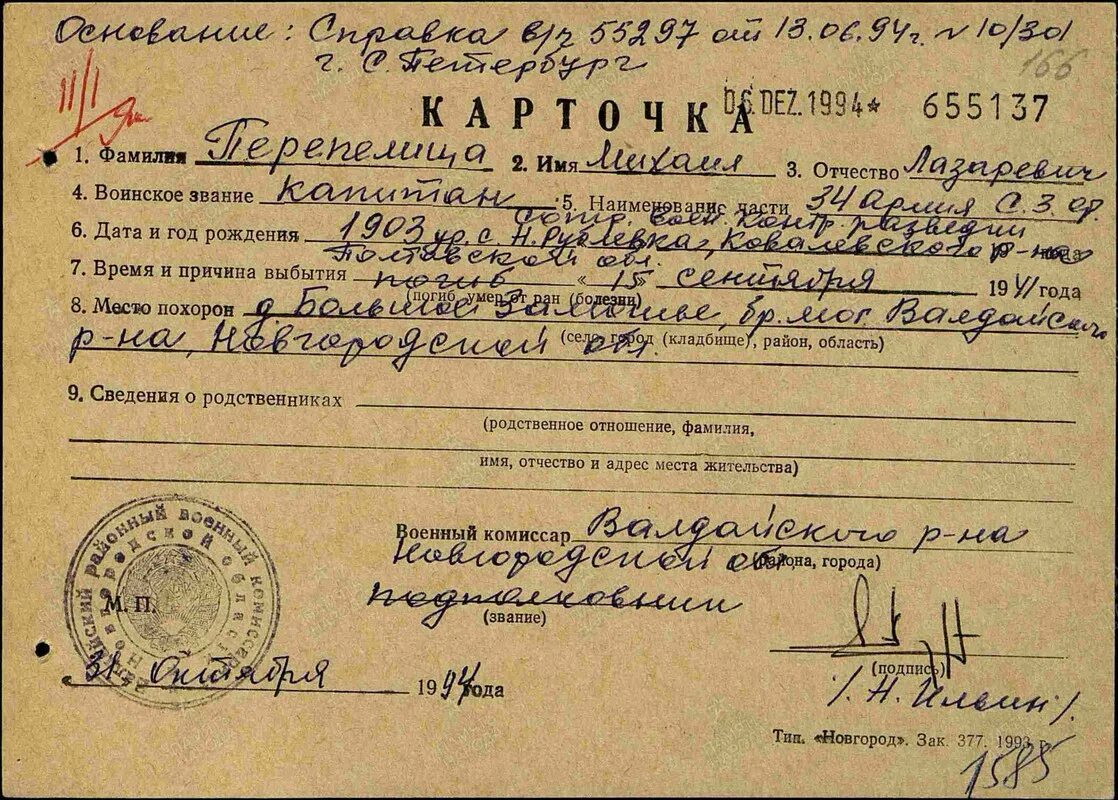 Основание: Справка в/ч 55297 от 13.06.94г. N 10/301
г. С. Петербург
166
КАРТОЧКА
06. DEZ. 1994* 655137
11/1
1. Фамилия Перепелица 2. Имя Михаил 3. Отчество Лазаревич
4. Воинское звание капитан 5. Наименование части 34 армия С.З. фр.
сотр. воен. контр. разведки
6. Дата и год рождения 1903 ур. с. Н. Рублевка, Ковалевского р-на
Полтавской обл.
7. Время и причина выбытия погиб "15" сентября 1941 года
(погиб, умер от ран (болезни)
8. Место похорон д. Большое Замошье, бр. мог. Валдайского
р-на, Новгородской обл.
(село, город (кладбище), район, область)
9. Сведения о родственниках
(родственное отношение, фамилия,
имя, отчество и адрес места жительства)
Военный комиссар Валдайского р-на
Новгородской обл.
(района, города)
подполковник
(звание)
М. П.
Валдайский районный военный комиссариат
Новгородской области
(подпись)
31 октября 1994 года
/ Н. Ильин /.
Тип. «Новгород». Зак. 377. 1993 г.
1585